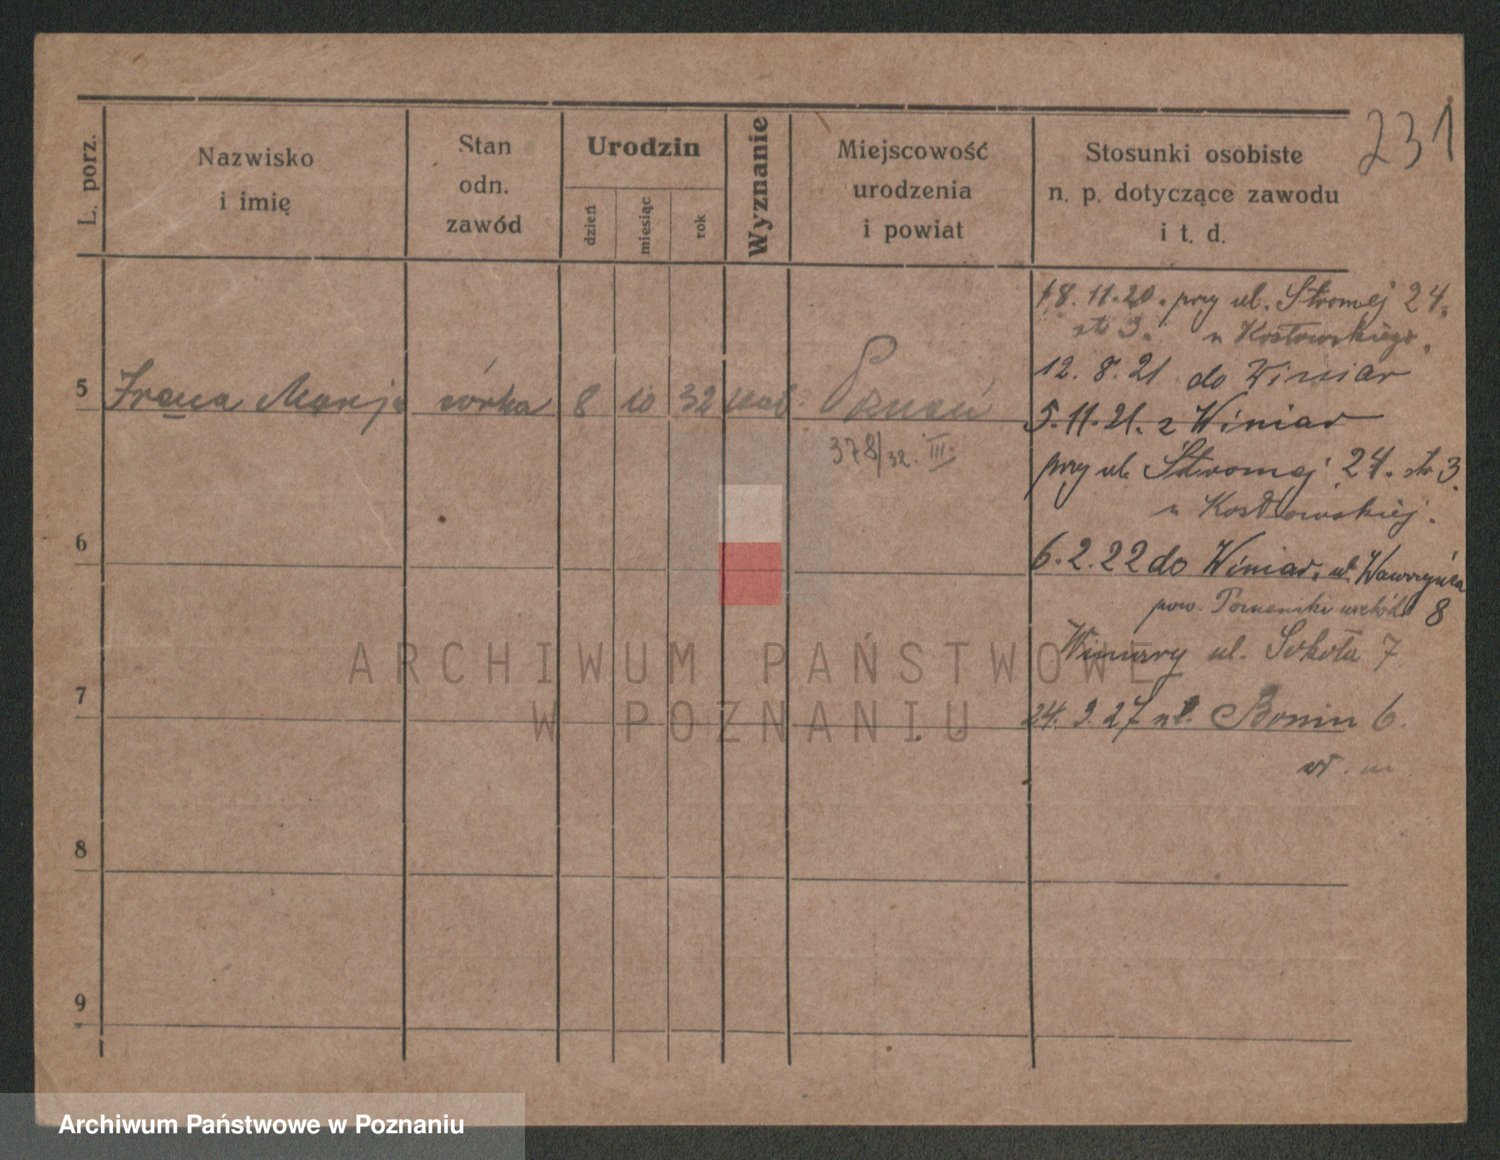 231
L. porz.
Nazwisko
i imię
Stan
odn.
zawód
Urodzin
dzień
miesiąc
rok
Wyznanie
Miejscowość
urodzenia
i powiat
Stosunki osobiste
n. p. dotyczące zawodu
i t. d.
18. 11. 20. przy ul. Stromej 24.
str 3. u Kosłowskiego.
12. 8. 21 do Winiar
5 Irena Marja córka 8 10 32 kat. Poznań
5. 11. 21. z Winiar
378/32. III.
przy ul. Stromej 24. str 3.
u Kosłowskiej.
6
6. 2. 22 do Winiar, ul. Wawrzyńca
pow. Poznański 8
Winiary ul. Sokoła 7
7
24. 9. 27 ul. Bonin 6.
8
9
ARCHIWUM PAŃSTWOWE
W POZNANIU
Archiwum Państwowe w Poznaniu